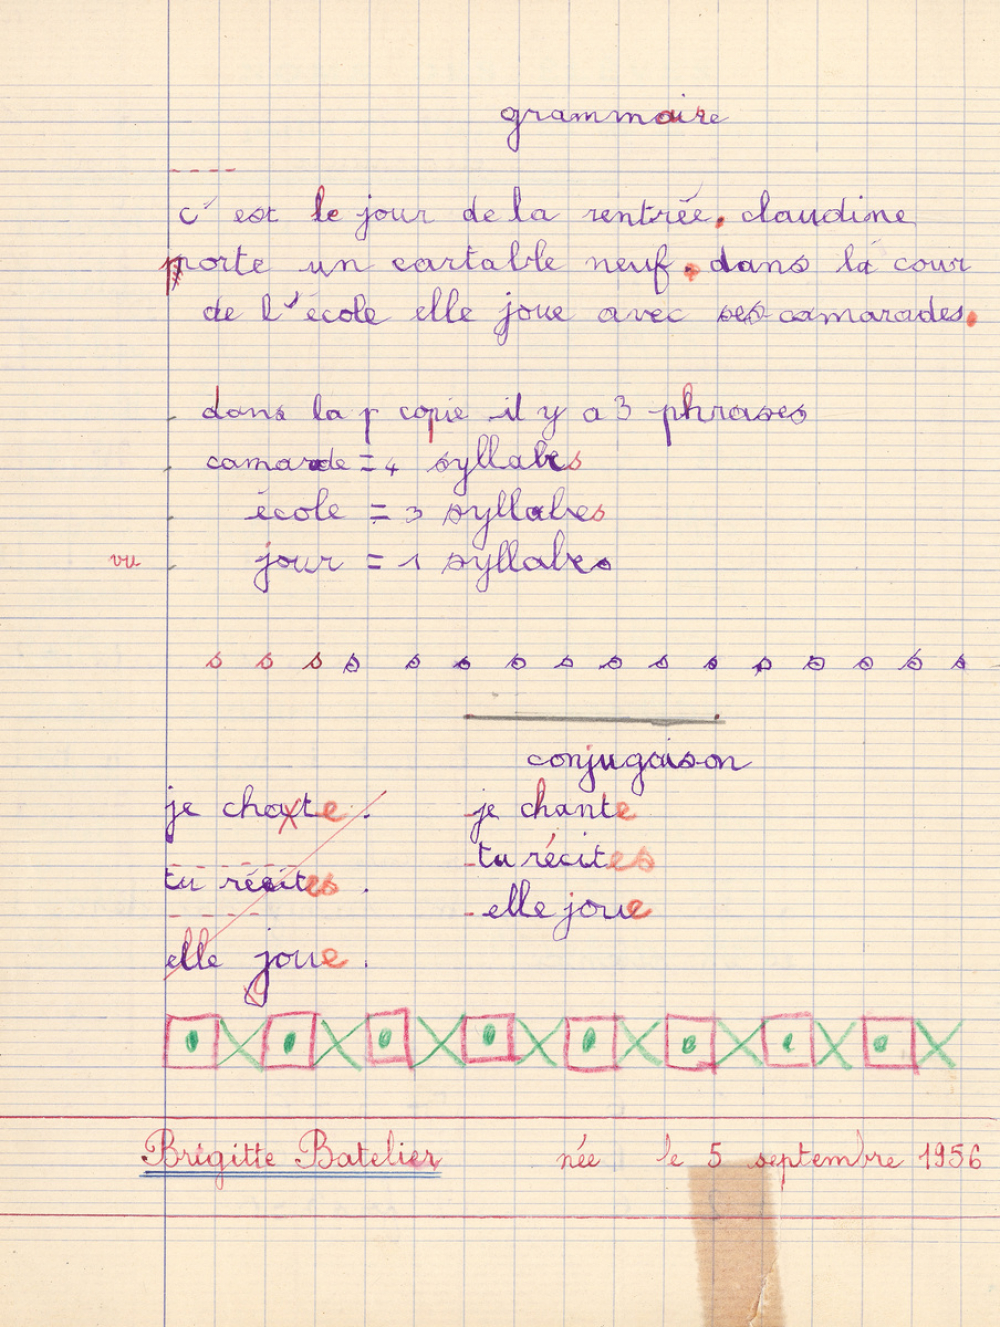 grammaire
c'est le jour de la rentrée. claudine
porte un cartable neuf. dans la cour
de l'école elle joue avec ses camarades.
dans la copie il y a 3 phrases
camarde = 4 syllabes
école = 3 syllabes
vu jour = 1 syllabes
s s s s s s s s s s s s s s s s
conjugaison
je chate. je chante
tu récites. tu récites
elle joue. elle joue
Brigitte Batelier née le 5 septembre 1956